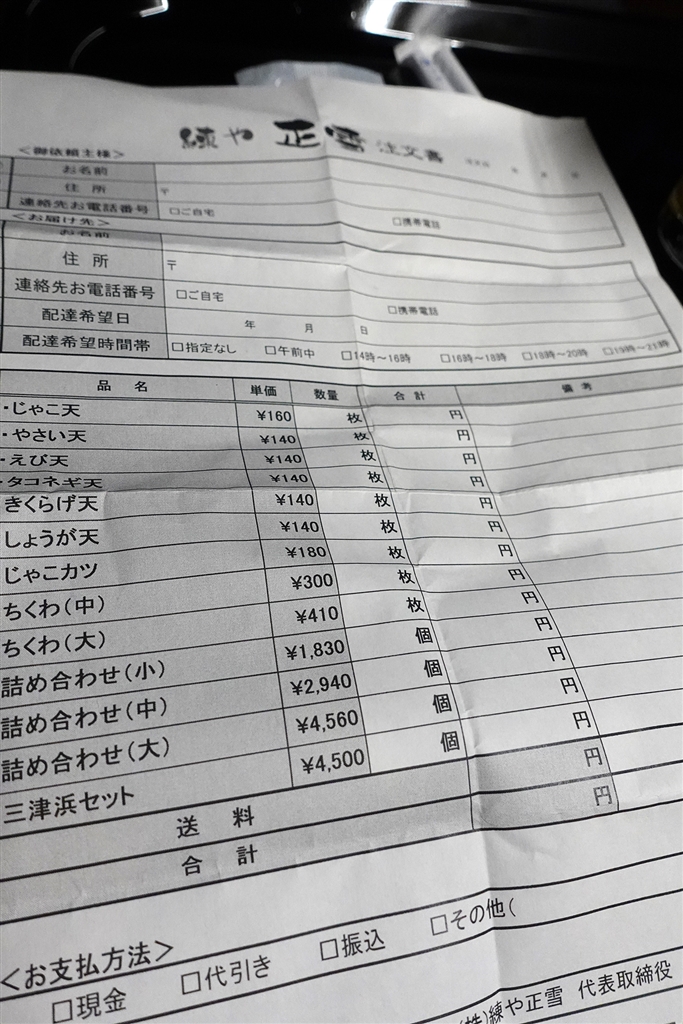 練や 正雪 注文書 年 月 日
＜御依頼主様＞
お名前
住 所 〒
連絡先お電話番号 □ご自宅 □携帯電話
＜お届け先＞
お名前
住 所 〒
連絡先お電話番号 □ご自宅 □携帯電話
配達希望日 年 月 日
配達希望時間帯 □指定なし □午前中 □14時～16時 □16時～18時 □18時～20時 □19時～21時
品 名 単価 数量 合 計 備 考
・じゃこ天 ¥160 枚 円
・やさい天 ¥140 枚 円
・えび天 ¥140 枚 円
・タコネギ天 ¥140 枚 円
きくらげ天 ¥140 枚 円
しょうが天 ¥140 枚 円
じゃこカツ ¥180 枚 円
ちくわ(中) ¥300 枚 円
ちくわ(大) ¥410 枚 円
詰め合わせ(小) ¥1,830 個 円
詰め合わせ(中) ¥2,940 個 円
詰め合わせ(大) ¥4,560 個 円
三津浜セット ¥4,500 個 円
送 料 円
合 計 円
＜お支払方法＞
□現金 □代引き □振込 □その他(
(株)練や正雪 代表取締役